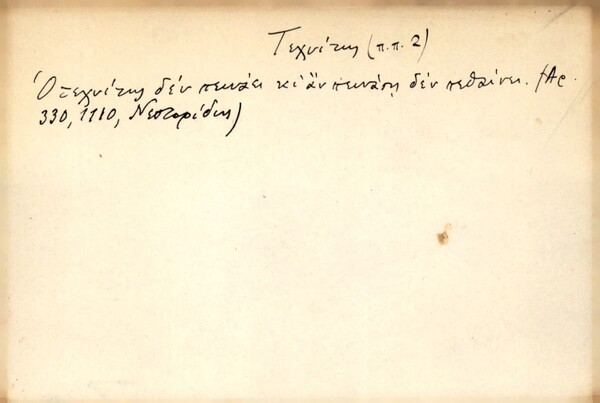 Τεχνίτης (π.π. 2)
Ὁ τεχνίτης δέν πεινάει κι ἄν πεινάσῃ δέν πεθαίνει. (Αρ.
330, 1110, Νεστορίδης)